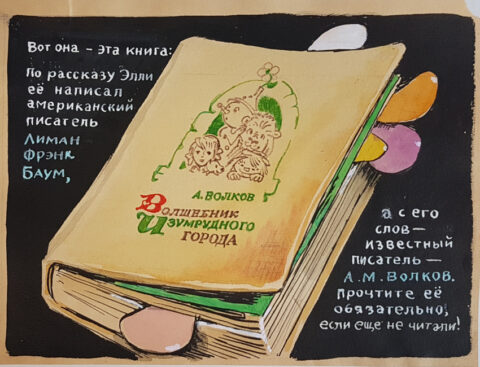 Вот она – эта книга:
По рассказу Элли
её написал
американский
писатель
Лиман
Фрэнк
Баум,
А. Волков
Волшебник
Изумрудного
города
а с его
слов —
известный
писатель —
А.М. Волков.
Прочтите её
обязательно,
если еще не читали!